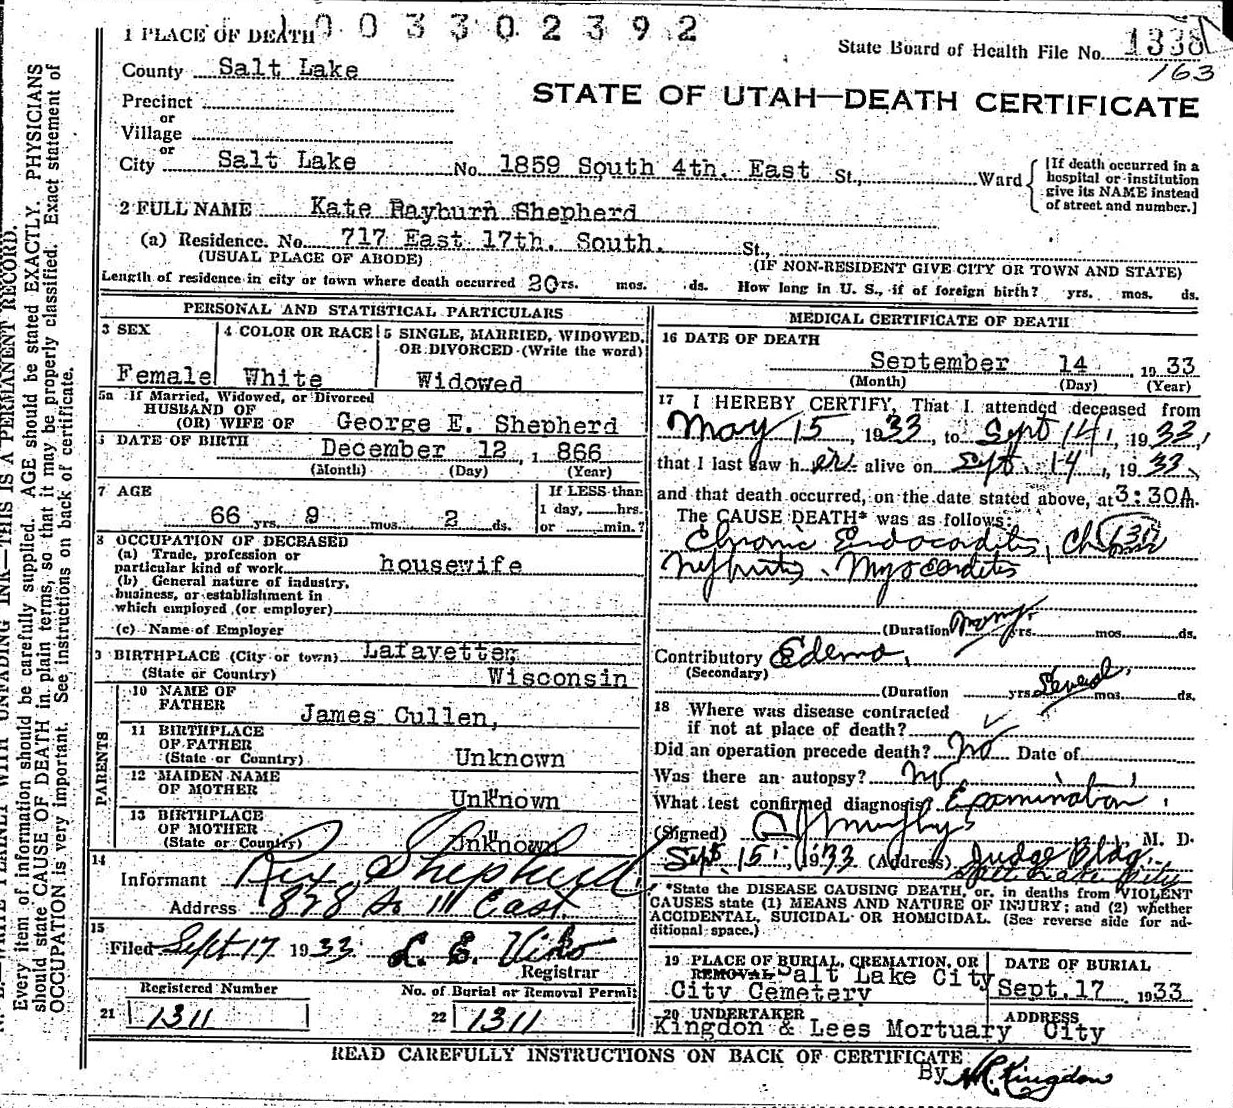 1003302392
1 PLACE OF DEATH
State Board of Health File No. 1338
163
County Salt Lake
STATE OF UTAH—DEATH CERTIFICATE
Precinct
or
Village
or
City Salt Lake No. 1859 South 4th. East St., Ward
[If death occurred in a
hospital or institution
give its NAME instead
of street and number.]
2 FULL NAME Kate Rayburn Shepherd
(a) Residence. No. 717 East 17th. South. St.,
(USUAL PLACE OF ABODE) (IF NON-RESIDENT GIVE CITY OR TOWN AND STATE)
Length of residence in city or town where death occurred 20 rs. mos. ds. How long in U. S., if of foreign birth? yrs. mos. ds.
PERSONAL AND STATISTICAL PARTICULARS
3 SEX
Female
4 COLOR OR RACE
White
5 SINGLE, MARRIED, WIDOWED,
OR DIVORCED (Write the word)
Widowed
5a If Married, Widowed, or Divorced
HUSBAND OF
(OR) WIFE OF George E. Shepherd
DATE OF BIRTH
December 12, 1866
(Month) (Day) (Year)
7 AGE
66 yrs. 9 mos. 2 ds.
If LESS than
1 day, hrs.
or min.?
8 OCCUPATION OF DECEASED
(a) Trade, profession or
particular kind of work housewife
(b) General nature of industry,
business, or establishment in
which employed (or employer)
(c) Name of Employer
9 BIRTHPLACE (City or town) Lafayette,
(State or Country) Wisconsin
PARENTS
10 NAME OF
FATHER
James Cullen,
11 BIRTHPLACE
OF FATHER
(State or Country) Unknown
12 MAIDEN NAME
OF MOTHER
Unknown
13 BIRTHPLACE
OF MOTHER
(State or Country) Unknown
14
Informant Rex Shepherd
Address 828 So 111 East.
15
Filed Sept 17 1933 L. E. Viko
Registrar
Registered Number
21 1311
No. of Burial or Removal Permit
22 1311
MEDICAL CERTIFICATE OF DEATH
16 DATE OF DEATH
September 14, 1933
(Month) (Day) (Year)
17 I HEREBY CERTIFY, That I attended deceased from
May 15, 1933, to Sept 14, 1933,
that I last saw her alive on Sept. 14, 1933,
and that death occurred, on the date stated above, at 3:30A.
The CAUSE DEATH* was as follows:
Chronic Endocarditis, Chronic
Nephritis. Myocarditis
(Duration many yrs. mos. ds.
Contributory Edema,
(Secondary)
(Duration yrs. Several mos. ds.
18 Where was disease contracted
if not at place of death?
Did an operation precede death? No Date of
Was there an autopsy? No
What test confirmed diagnosis? Examination
(Signed) M. D.
Sept. 15, 1933 (Address) Judge Bldg.
Salt Lake City
*State the DISEASE CAUSING DEATH, or, in deaths from VIOLENT
CAUSES state (1) MEANS AND NATURE OF INJURY; and (2) whether
ACCIDENTAL, SUICIDAL OR HOMICIDAL. (See reverse side for ad-
ditional space.)
19 PLACE OF BURIAL, CREMATION, OR
REMOVAL Salt Lake City
City Cemetery
DATE OF BURIAL
Sept. 17 1933
20 UNDERTAKER
Kingdon & Lees Mortuary
ADDRESS
City
READ CAREFULLY INSTRUCTIONS ON BACK OF CERTIFICATE
By Kingdon
WRITE PLAINLY WITH UNFADING INK—THIS IS A PERMANENT RECORD.
Every item of information should be carefully supplied. AGE should be stated EXACTLY. PHYSICIANS
should state CAUSE OF DEATH in plain terms, so that it may be properly classified. Exact statement of
OCCUPATION is very important. See instructions on back of certificate.